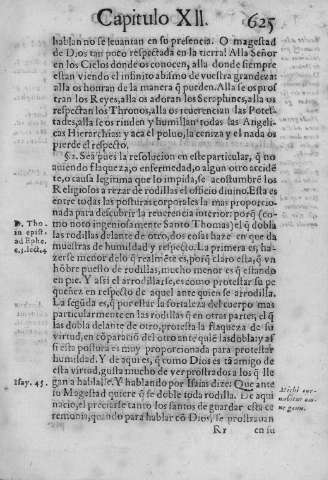 Capitulo XII. 625
hablan no se leuantan en su presencia. O magestad
de Dios tan poco respectada en la tierra! Alla Señor
en los Cielos donde os conocen, alla donde siempre
estan viendo el infinito abismo de vuestra grandeza:
alla os honran de la manera q̃ pueden. Alla se os pros
tran los Reyes, alla os adoran los Seraphines, alla os
respectan los Thronos, alla os reuerencian las Potes-
tades, alla se os rinden y humillan todas las Angeli-
cas Hierarchias: y aca el poluo, la ceniza y el nada os
pierde el respecto.
§2. Sea pues la resolucion en este particular, q̃ no
auiendo flaqueza, o enfermedad, o algun otro accidẽ
te, o causa legitima que lo impida, se acostumbrẽ los
Religiosos a rezar de rodillas el officio diuino. Esta es
entre todas las posturas corporales la mas propor-
nada para descubrir la reuerencia interior: porq̃ (co-
mo noto ingeniosamente Santo Thomas) el q̃ dobla
las rodillas delante de otro, dos cosas haze en que da
muestras de humildad y respecto. La primera es, ha-
zerse menor delo q̃ realmẽte es, porq̃ claro esta, q̃ vn
hõbre puesto de rodillas, mucho menor es q̃ estando
en pie. Y assi el arrodillarse, es como protestar su pe
queñez en respecto de aquel ante quien se arrodilla.
La segũda es, q̃ por estar la fortaleza del cuerpo mas
particularmente en las rodillas q̃ en otras partes, el q̃
las dobla delante de otro, protesta la flaqueza de su
virtud, en cõparaciõ del otro ante quiẽ las dobla: y as
si esta postura es muy proporcionada para protestar
humildad. Y de aqui es, q̃ como Dios es tã amigo de
esta virtud, gusta mucho de ver prostrados a los q̃ lle
gan a hablalle. Y hablando por Isaias dize: Que ante
su Magestad quiere q̃ se doble toda rodilla. De aqui
nacio, el preciarse tanto los santos de guardar esta ce
remonia, quando para hablar cõ Dios, se prostrauan
Rr en su
D. Tho.
in epist.
ad Ephe.
c.3. lect.4
Isay. 45.
Mihi cur-
uabitur om-
ne genu.